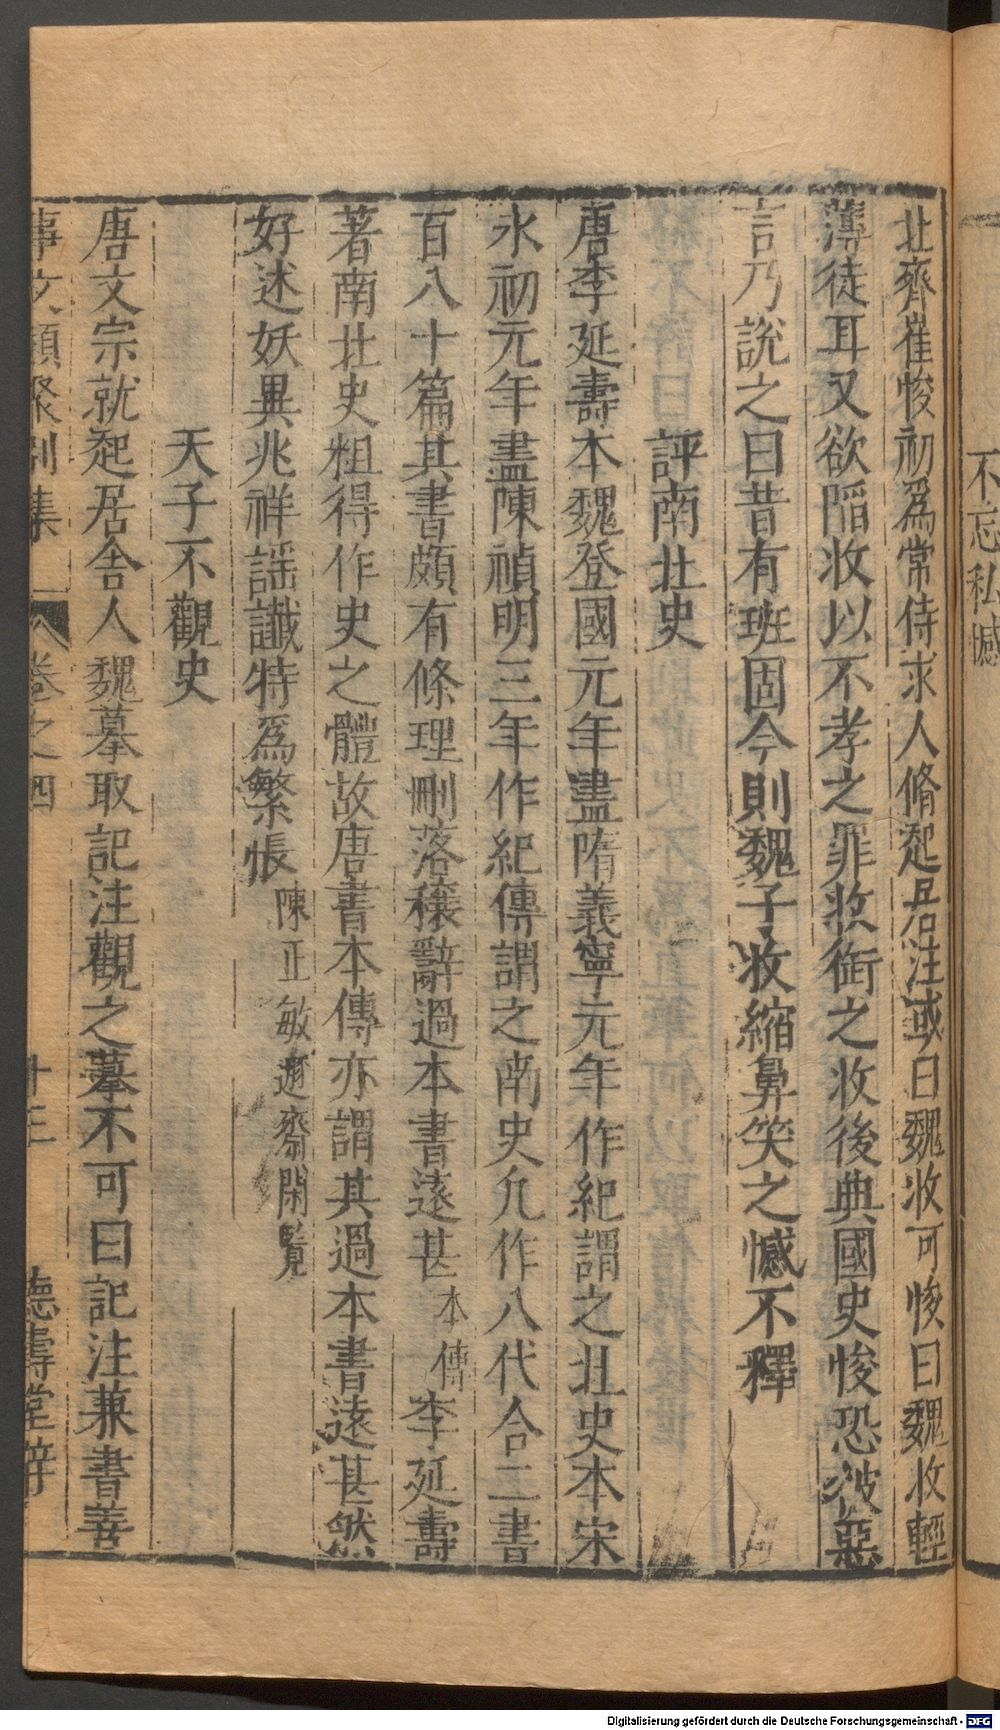 不忘私憾
北齊崔㥄初爲常侍求人脩起居注或曰魏收可㥄曰魏收輕
薄徒耳又欲陷收以不孝之罪收銜之收後典國史㥄恐被惡
言乃說之曰昔有班固今則魏子收縮鼻笑之憾不釋
評南北史
唐李延壽本魏登國元年盡隋義寧元年作紀謂之北史本宋
永初元年盡陳禎明三年作紀傳謂之南史凢作八代合二書
百八十篇其書頗有條理刪落穣辭過本書遠甚本傳李延壽
著南北史粗得作史之體故唐書本傳亦謂其過本書遠甚然
好述妖異兆祥謡讖特爲繁悵陳正敏遯齋閑覧
天子不觀史
唐文宗就起居舍人魏謩取記注觀之謩不可曰記注兼書善
事文類聚別集 卷之四 十三 德壽堂梓
Digitalisierung gefördert durch die Deutsche Forschungsgemeinschaft - DFG